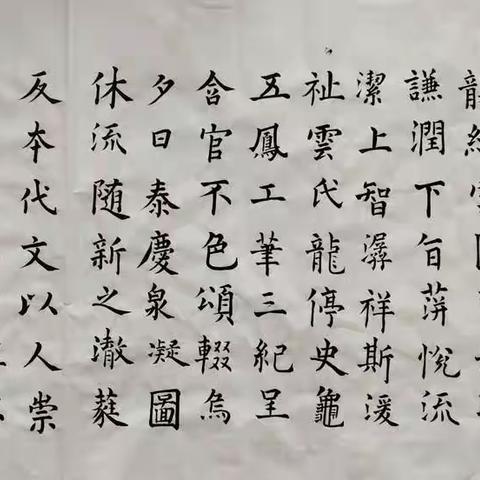 謙潤下旨萍悅流
潔上智潺祥斯湲
祉雲氏龍停史龜
五鳳工筆三紀呈
含官不色頌輟烏
夕日泰慶泉凝圖
休流随新之澈蕤
反本代文以人崇